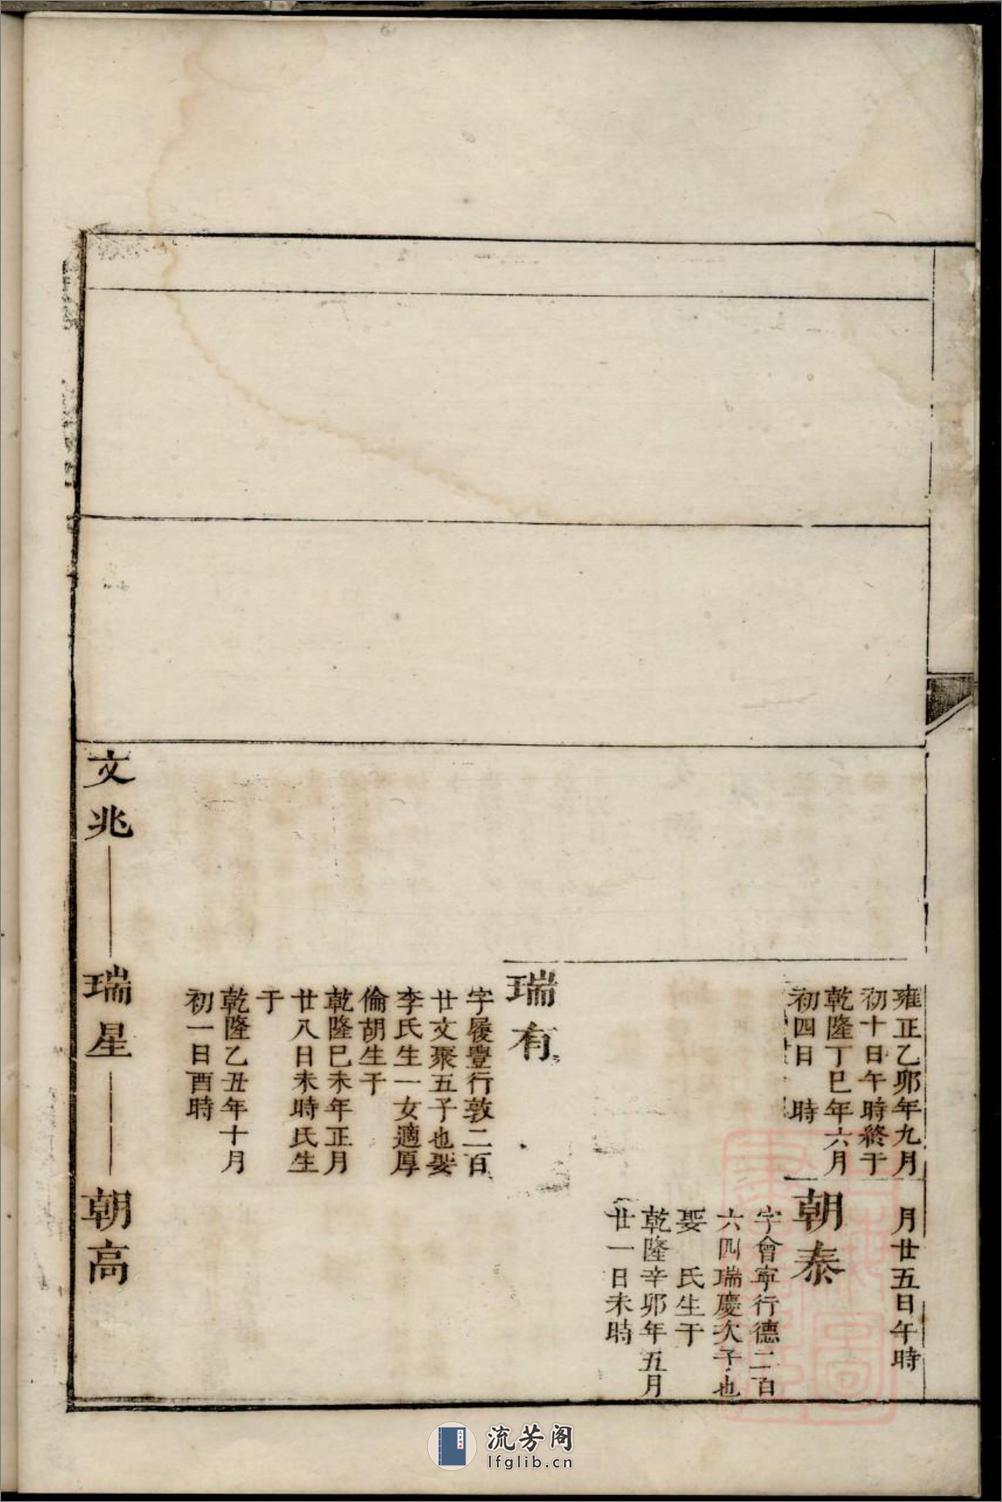 雍正乙卯年九月
初十日午時終于
乾隆丁巳年六月
初四日　時
月廿五日午時
朝泰
字會寧行德二百
六四瑞慶次子也
娶　氏生于
乾隆辛卯年五月
廿一日未時
瑞有
字履豐行敦二百
廿文聚五子也娶
李氏生一女適厚
倫胡生于
乾隆巳未年正月
廿八日未時氏生
于
乾隆乙丑年十月
初一日酉時
文兆
瑞星
朝高
流芳阁
lfglib.cn